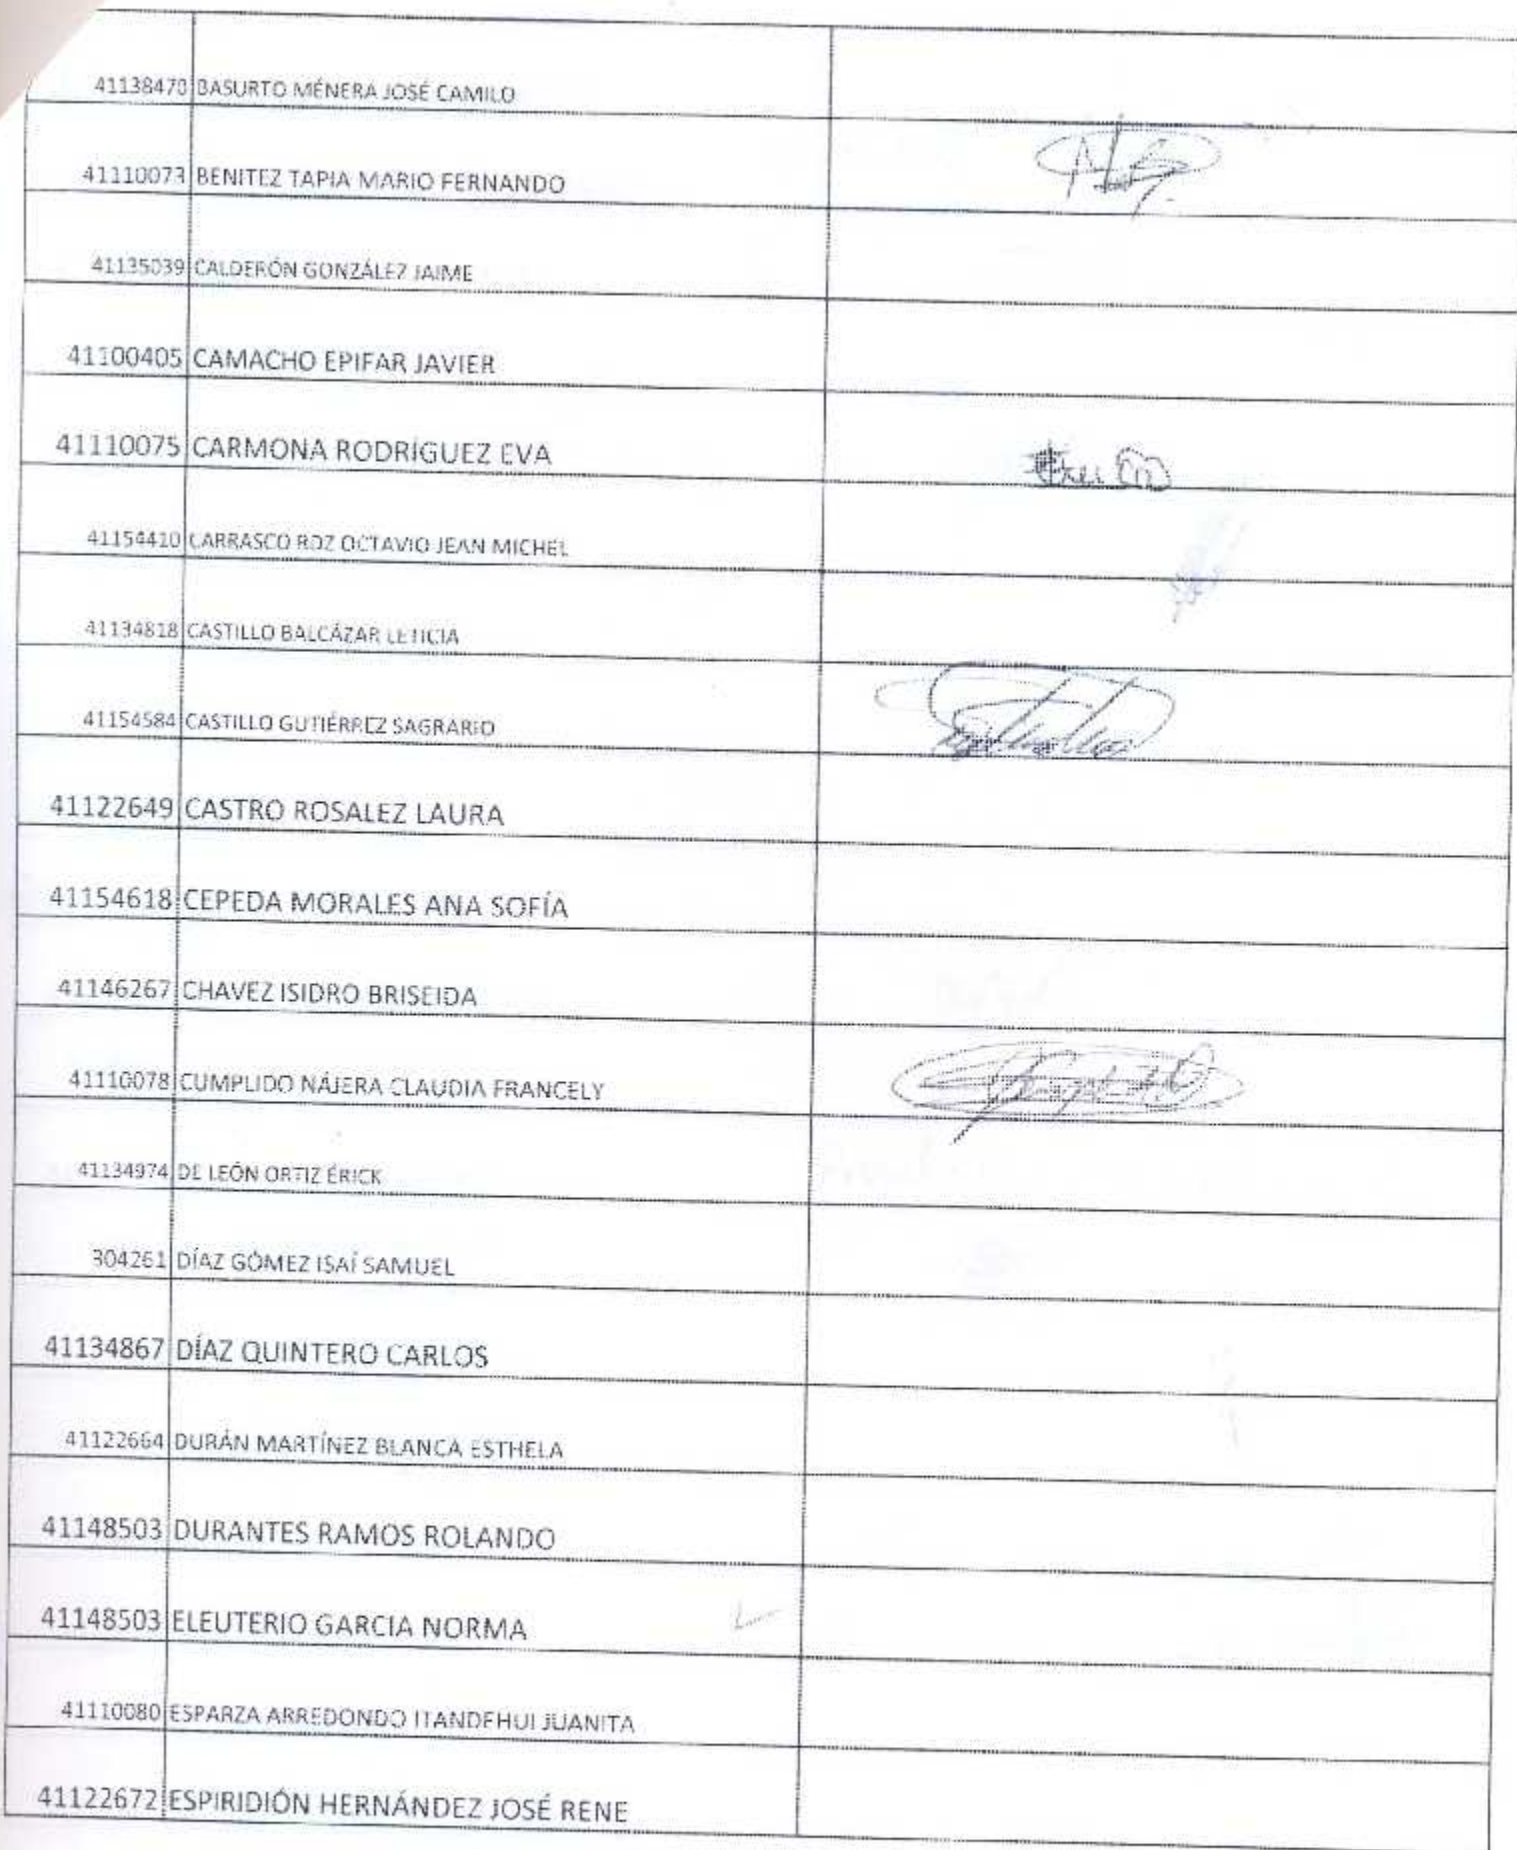 41138470 BASURTO MÉNERA JOSÉ CAMILO
41110073 BENITEZ TAPIA MARIO FERNANDO
41135039 CALDERÓN GONZÁLEZ JAIME
41100405 CAMACHO EPIFAR JAVIER
41110075 CARMONA RODRÍGUEZ EVA
41154410 CARRASCO RDZ OCTAVIO JEAN MICHEL
41134818 CASTILLO BALCÁZAR LETICIA
41154584 CASTILLO GUTIÉRREZ SAGRARIO
41122649 CASTRO ROSALEZ LAURA
41154618 CEPEDA MORALES ANA SOFÍA
41146267 CHAVEZ ISIDRO BRISEIDA
41110078 CUMPLIDO NÁJERA CLAUDIA FRANCELY
41134974 DE LEÓN ORTIZ ÉRICK
304261 DÍAZ GÓMEZ ISAÍ SAMUEL
41134867 DÍAZ QUINTERO CARLOS
41122664 DURÁN MARTÍNEZ BLANCA ESTHELA
41148503 DURANTES RAMOS ROLANDO
41148503 ELEUTERIO GARCIA NORMA
41110080 ESPARZA ARREDONDO ITANDEHUI JUANITA
41122672 ESPIRIDIÓN HERNÁNDEZ JOSÉ RENE